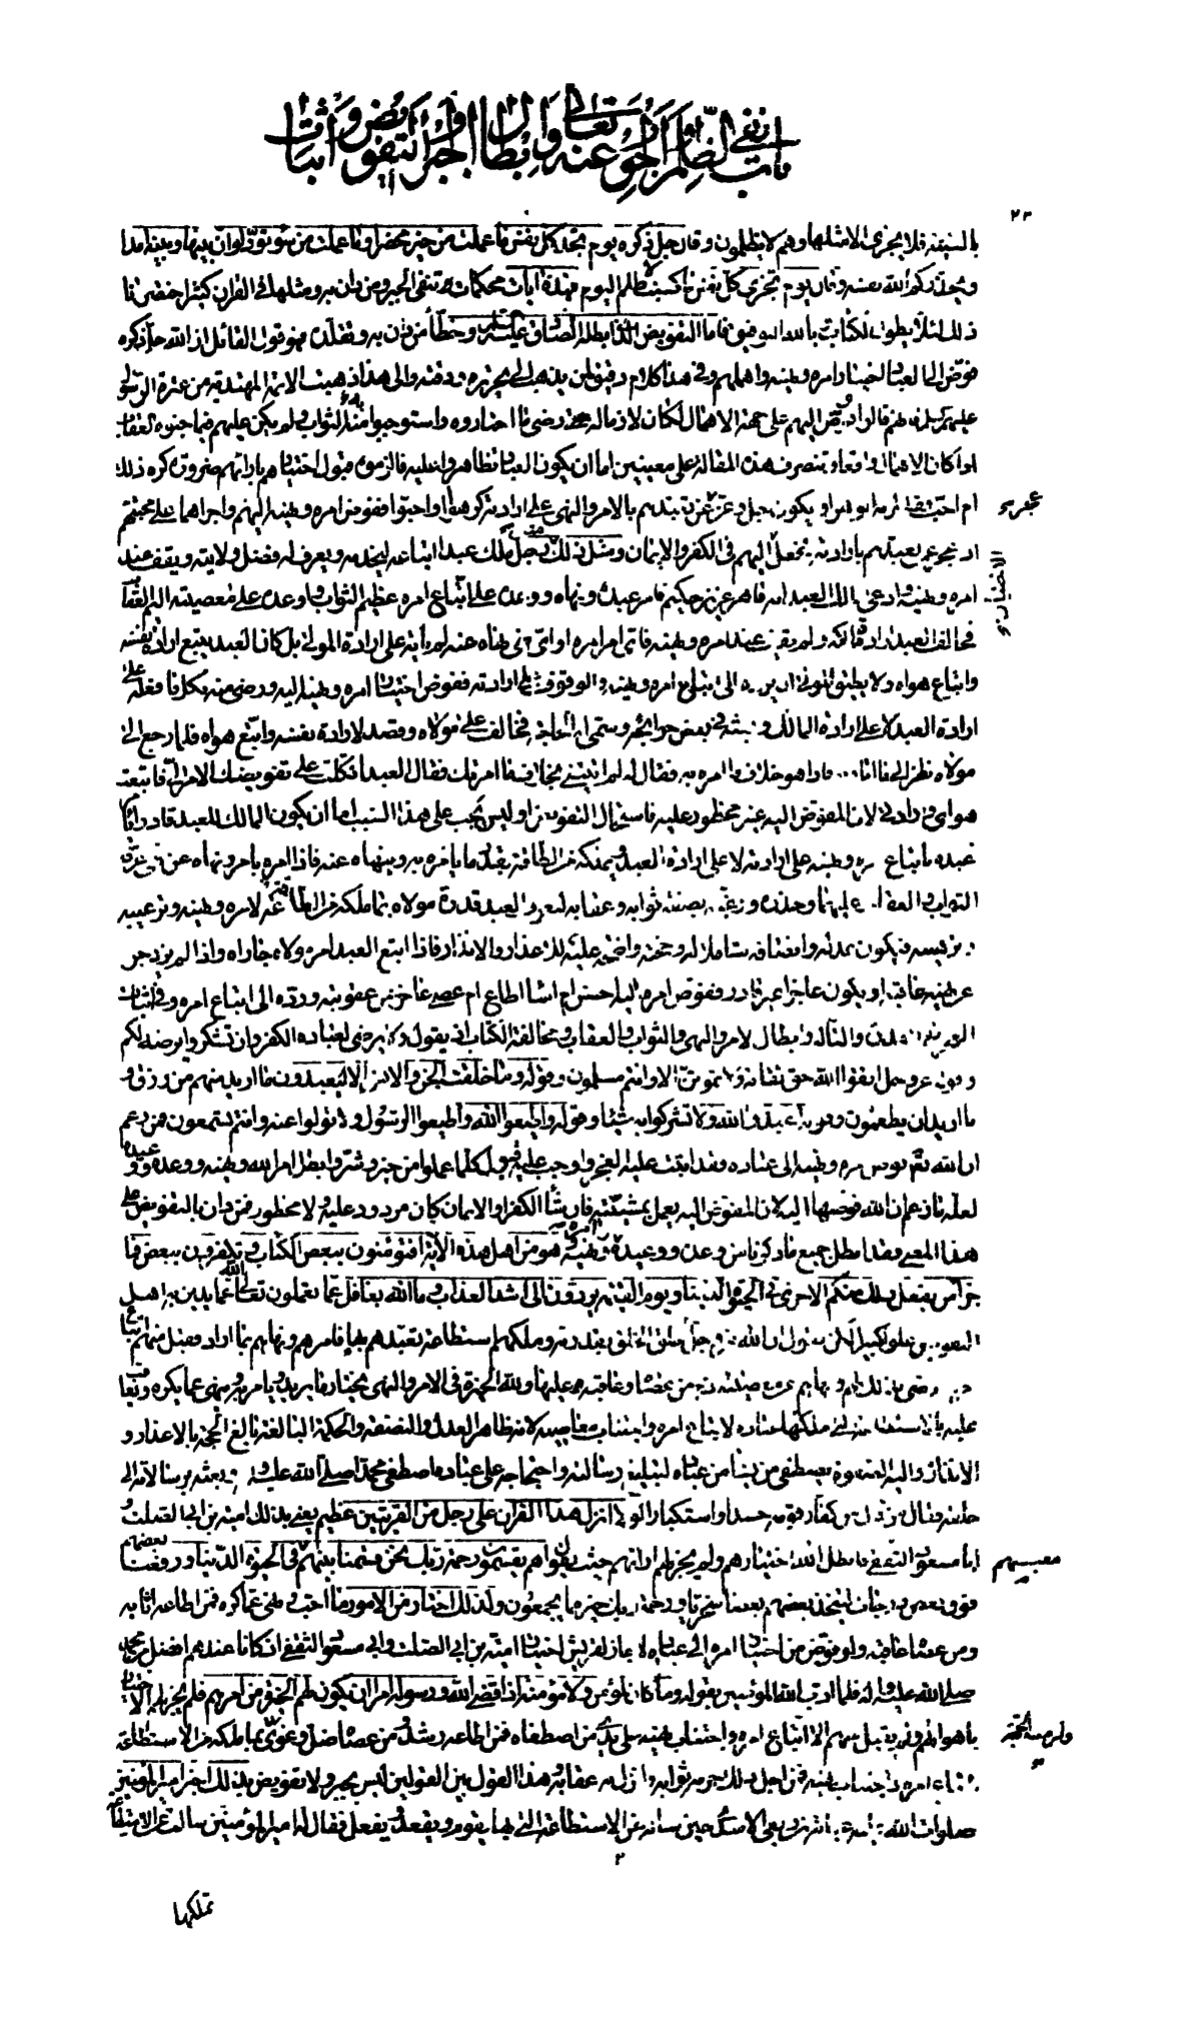 باب نفي الظلم والجور عنه تعالى وإبطال الجبر والتفويض وإثبات
٢٣
بالسيئة فلا يجزى الا مثلها وهم لا يظلمون وقال جل ذكره يوم تجد كل نفس ما عملت من خير محضرا وما عملت من سوء تود لو ان بينها وبينه امدا
ويحذركم الله نفسه وقال يوم تجزى كل نفس بما كسبت لا ظلم اليوم فهذه ايات محكمات تنفي الجبر ومن دان به ومثلها في القران كثير اختصرنا
ذلك لئلا يطول الكتاب وبالله التوفيق فاما التفويض الذي ابطله الصادق عليه السلم وخطأ من دان به وتقلده فهو قول القائل ان الله جل ذكره
فوض الى العباد اختيار امره ونهيه واهملهم وفي هذا كلام دقيق لمن يذهب الى تحريره ودقته والى هذا ذهبت الائمة المهتدية من عترة الرسول
عليهم السلم فانهم قالوا لو فوض اليهم على جهة الاهمال لكان لازما له رضى ما اختاروه واستوجبوا منه الثواب ولم يكن عليهم فيما جنوه العقاب
اذا كان الاهمال واقعا وتنصرف هذه المقالة على معنيين اما ان يكون العباد تظاهروا عليه فالزموه قبول اختيارهم بارائهم ضرورة كره ذلك
ام احب فقد لزمه الوهن او يكون جل وعز عجز عن تعبدهم بالامر والنهي على ارادته كرهوا او احبوا ففوض امره ونهيه اليهم واجراهما على محبتهم
اذ عجز عن تعبدهم بارادته فجعل اليهم في الكفر والايمان ومثل ذلك رجل ملك عبدا ابتاعه ليخدمه ويعرف له فضل ولايته ويقف عند
امره ونهيه وادعى مالك العبد انه قاهر عزيز حكيم فامر عبده ونهاه ووعده على اتباع امره عظيم الثواب واوعده على معصيته اليم العقاب
فخالف العبد ارادة مالكه ولم يقف عند امره ونهيه فاي امر امره او اي نهي نهاه عنه لم يأته على ارادة المولى بل كان العبد يتبع ارادة نفسه
واتباع هواه ولا يطيق المولى ان يرده الى اتباع امره ونهيه والوقوف على ارادته ففوض اختيار امره ونهيه اليه ورضي منه بكل ما فعله على
ارادة العبد لا على ارادة المالك وبعثه في بعض حوائجه وسمى له الحاجة فخالف على مولاه وقصد لارادة نفسه واتبع هواه فلما رجع الى
مولاه نظر الى ما اتاه فاذا هو خلاف ما امره به فقال له لم اتيتني بخلاف ما امرتك فقال العبد اتكلت على تفويضك الامر الي فاتبعت
هواي وارادتي لان المفوض اليه غير محظور عليه فاستحال التفويض اوليس يجب على هذا السبب اما ان يكون المالك للعبد قادرا يأمر
عبده باتباع امره ونهيه على ارادته لا على ارادة العبد ويملكه من الطاقة بقدر ما يأمره به وينهاه عنه فاذا امره بامر ونهاه عن نهي عرفه
الثواب والعقاب عليهما وحذره ورغبه بصفة ثوابه وعقابه ليعرف العبد قدرة مولاه بما ملكه من الطاقة لامره ونهيه وترغيبه
وترهيبه فيكون عدله وانصافه شاملا له وحجته واضحة عليه للاعذار والانذار فاذا اتبع العبد امر مولاه جازاه واذا لم يزدجر
عن نهيه عاقبه او يكون عاجزا غير قادر ففوض امره اليه احسن ام اساء اطاع ام عصى عاجز عن عقوبته ورده الى اتباع امره وفي اثبات
العجز نفي القدرة والتأله وابطال الامر والنهي والثواب والعقاب ومخالفة الكتاب اذ يقول ولا يرضى لعباده الكفر وان تشكروا يرضه لكم
وقوله عز وجل اتقوا الله حق تقاته ولا تموتن الا وانتم مسلمون وقوله وما خلقت الجن والانس الا ليعبدون ما اريد منهم من رزق و
ما اريد ان يطعمون وقوله اعبدوا الله ولا تشركوا به شيئا وقوله واطيعوا الله واطيعوا الرسول ولا تولوا عنه وانتم تسمعون فمن زعم
ان الله تعالى فوض امره ونهيه الى عباده فقد اثبت عليه العجز واوجب عليه قبول كلما عملوا من خير وشر وابطل امر الله ونهيه ووعده ووعيده
لعلة ما زعم ان الله فوضها اليه لان المفوض اليه يعمل بمشيته فان شاء الكفر او الايمان كان مردود عليه ولا محظور فمن دان بالتفويض على
هذا المعنى فقد ابطل جميع ما ذكرنا من وعده ووعيده وامره ونهيه وهو من اهل هذه الاية افتؤمنون ببعض الكتاب وتكفرون ببعض فما
جزاء من يفعل ذلك منكم الا خزي في الحيوة الدنيا ويوم القيمة يردون الى اشد العذاب وما الله بغافل عما تعملون تعالى الله عما يدين به اهل
التفويض علوا كبيرا لكن نقول ان الله عز وجل خلق الخلق بقدرته وملكهم استطاعة تعبدهم بها فامرهم ونهاهم بما اراد فقبل منهم اتباع
امره ورضي بذلك لهم ونهاهم عن معصيته وذم من عصاه وعاقبه عليها ولله الخيرة في الامر والنهي يختار ما يريد ويامر به وينهى عما يكره ويعاقب
عليه بالاستطاعة التي ملكها عباده لاتباع امره واجتناب معاصيه لانه ظاهر العدل والنصفة والحكمة البالغة بالغ الحجة بالاعذار و
الانذار واليه الصفوة يصطفي من يشاء من عباده لتبليغ رسالته واحتجاجه على عباده اصطفى محمدا صلى الله عليه وآله وبعثه برسالاته الى
خلقه فقال من قال من كفار قومه حسدا واستكبارا لولا انزل هذا القران على رجل من القريتين عظيم يعني بذلك امية بن ابي الصلت و
ابا مسعود الثقفي فابطل الله اختيارهم ولم يجز لهم ارائهم حيث يقول اهم يقسمون رحمة ربك نحن قسمنا بينهم معيشتهم في الحيوة الدنيا ورفعنا بعضهم
فوق بعض درجات ليتخذ بعضهم بعضا سخريا ورحمة ربك خير مما يجمعون ولذلك اختار من الامور ما احب ونهى عما كره فمن اطاعه اثابه
ومن عصاه عاقبه ولو فوض من اختيار امره الى عباده لاجاز لقريش اختيار امية بن ابي الصلت وابي مسعود الثقفي اذ كانا عندهم افضل من محمد
صلى الله عليه وآله فلما ادب الله المؤمنين بقوله وما كان لمؤمن ولا مؤمنة اذا قضى الله ورسوله امرا ان يكون لهم الخيرة من امرهم فلم يجز لهم الاختيار
باهوائهم ولم يقبل منهم الا اتباع امره واجتناب نهيه على يدي من اصطفاه فمن اطاعه رشد ومن عصاه ضل وغوى بما ملكه من الاستطاعة
لاتباع امره واجتناب نهيه فمن اجل ذلك حرمه ثوابه وانزل به عقابه وهذا القول بين القولين ليس بجبر ولا تفويض بذلك اخبر امير المؤمنين
صلوات الله عليه عباية بن ربعي الاسدي حين سأله عن الاستطاعة التي بها يقوم ويقعد ويفعل فقال له امير المؤمنين سألت عن الاستطاعة
٢
تملكها